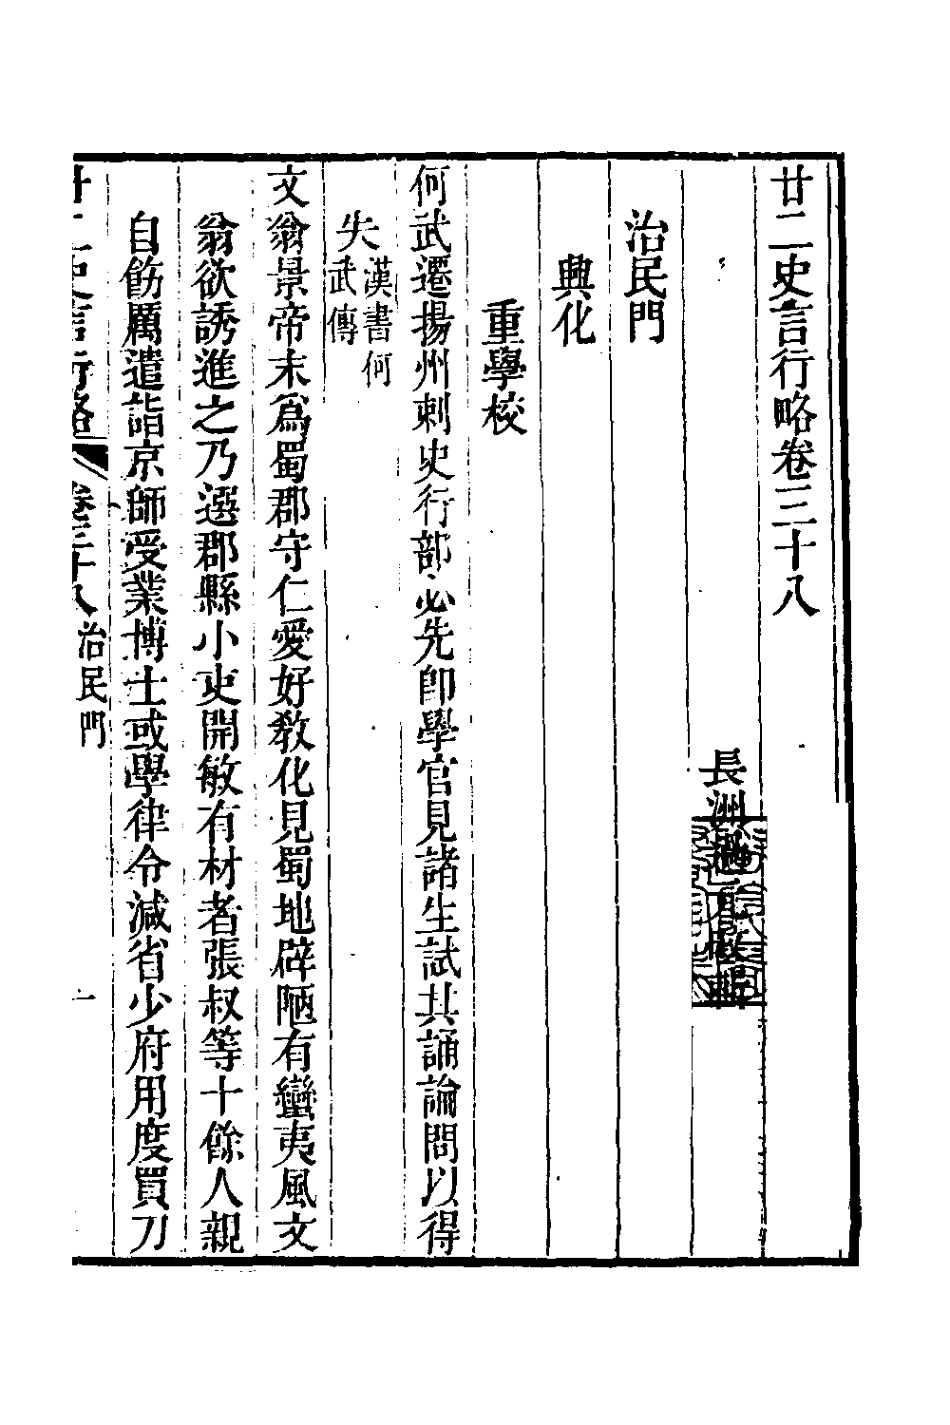 廿二史言行略卷三十八
長洲過元㫤輯
治民門
興化
重學校
何武遷揚州刺史行部必先卽學官見諸生試其誦論問以得
失漢書何武傳
文翁景帝末爲蜀郡守仁愛好敎化見蜀地辟陋有蠻夷風文
翁欲誘進之乃選郡縣小吏開敏有材者張叔等十餘人親
自飭厲遣詣京師受業博士或學律令減省少府用度買刀
廿二史言行略 卷三十八治民門 一